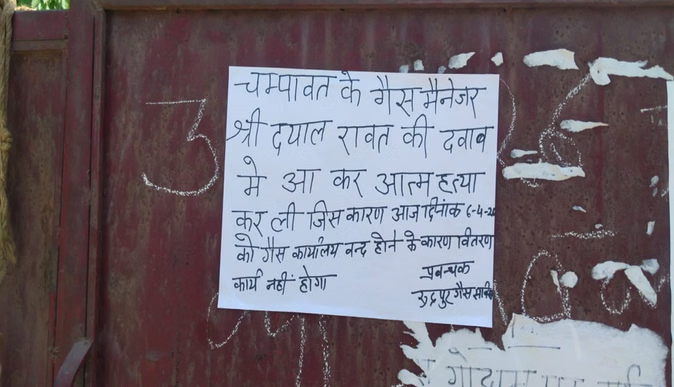 चम्पावत के गैस मैनेजर
श्री दयाल रावत की दवाव
मे आ कर आत्म हत्या
कर ली जिस कारण आज दिनांक 6-4-2
को गैस कार्यालय बन्द होने के कारण वितरण
कार्य नहीं होगा
प्रबन्धक
रुद्रपुर गैस सर्विस
3
गोदाम